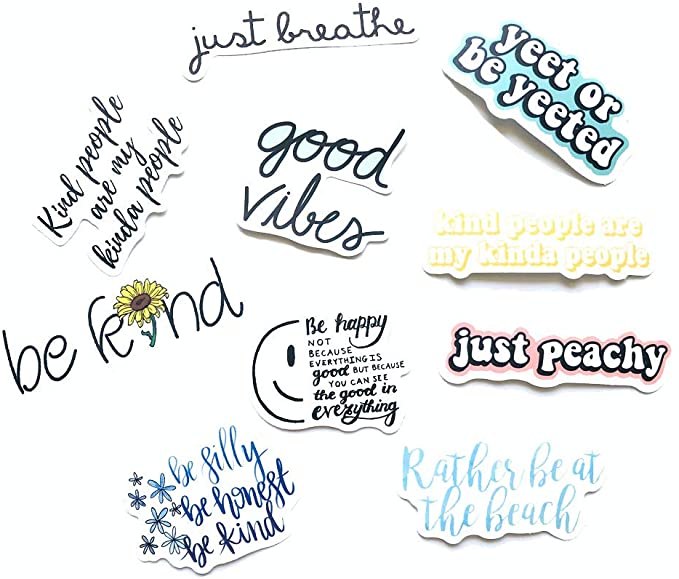 just breathe
yeet or
be yeeted
Kind people
are my
kinda people
good
vibes
kind people are
my kinda people
be kind
Be happy
NOT
BECAUSE
EVERYTHING IS
good BUT BECAUSE
YOU CAN SEE
the good in
everything
just peachy
be silly
be honest
be kind
Rather be at
the beach